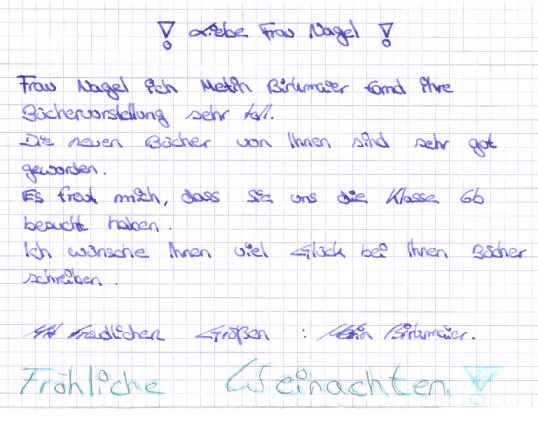 ! Liebe Frau Nagel !
Frau Nagel ich Metin Birkmaier fand ihre
Büchervorstellung sehr toll.
Die neuen Bücher von Ihnen sind sehr gut
geworden.
Es freut mich, dass Sie uns die Klasse 6b
besucht haben.
Ich wünsche Ihnen viel Glück bei Ihren Bücher
schreiben.
Mit freudlichen Grüßen : Metin Birkmaier.
Fröhliche Weinachten !